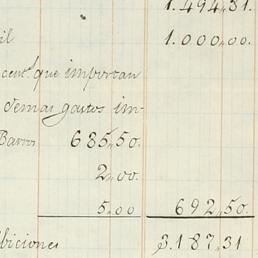 1.494,31.
il 1.000,00.
cent.ˢ que importan
demas gastos im-
Barros 685,50.
2,00.
5,00 692,50.
biciones 3.187,31